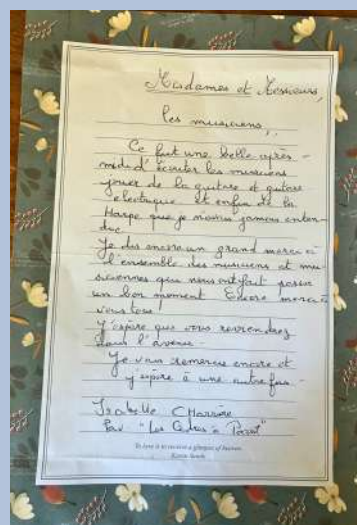 Madames et Messieurs,
les musiciens,
Ce fut une belle après-
midi d'écouter les musiciens
jouer de la guitare et guitare
électrique et enfin de la
Harpe que je n'avais jamais enten-
due.
Je dis encore un grand merci à
l'ensemble des musiciens et mu-
siciennes qui nous ont fait passer
un bon moment Encore merci à
vous tous.
J'espère que vous reviendrez
dans l'avenir.
Je vous remercie encore et
j'espère à une autre fois.
Isabelle CHarrière
Pav "Les Cèdres à
To love is to receive a glimpse of heaven.
Karen Sunde